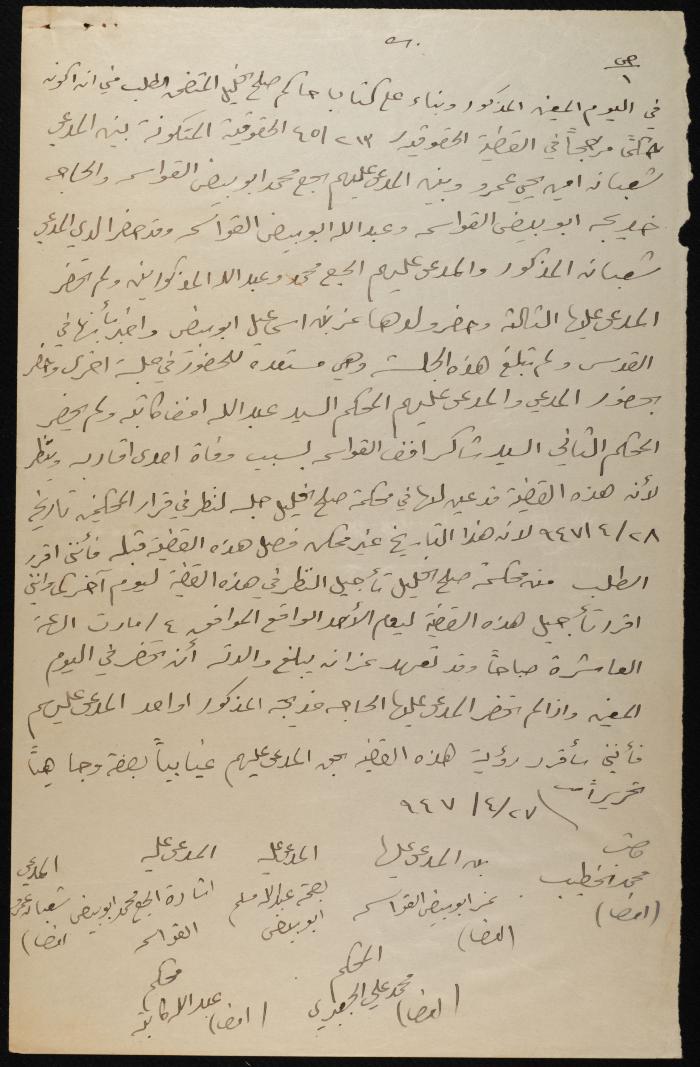 ص
١
في اليوم المعين المذكور وبناء على كتاب حاكم صلح الخليل المتضمن الطلب مني ان اكون
محكماً مرجحاً في القضية الحقوقية ٢١٣/٤٥ الحقوقية المتكونة بين المدعي
شعبان امين يحيى عمرو وبين المدعى عليهم الحج محمد ابو بيض القواسمه والحاجه
خديجه ابو بيض القواسمه وعبد الله ابو بيض القواسمه وقد حضر لدي المدعي
شعبان المذكور والمدعى عليهم الحج محمد وعبد الله المذكوراين ولم تحضر
المدعى عليها الثالثة وحضر ولدها عزات اسماعيل ابو بيض واخبر بأنها في
القدس ولم تبلغ هذه الجلسة وهي مستعدة للحضور في جلسة اخرى وحضر
بحضور المدعي والمدعى عليهم المحكم السيد عبد الله افندي كاتبه ولم يحضر
المحكم الثاني السيد شاكر افندي القواسمه بسبب وفاة احدى اقاربه وينظر
لأن هذه القضية قد عين لها في محكمة صلح الخليل جلسه لنظر في قرار المحكمين تاريخ
٢٨/٤/٩٤٧ لان هذا التاريخ غير ممكن فصل هذه القضية قبله فأنني اقرر
الطلب من محكمة صلح الخليل تأجيل النظر في هذه القضية ليوم آخر كما وانني
اقرر تأجيل هذه القضية ليوم الأحد الواقع الموافق ٤/مارت الساعة
العاشرة صباحاً وقد تعهد عزات يبلغ والدته أن تحضر في اليوم
المعين واذا لم تحضر المدعى عليها الحاجه خديجه المذكور او احد المدعى عليهم
فأنني سأقرر رؤية هذه القضية بحق المدعى عليهم غيابياً بصفة وجاهياً
تحريراً في ٢٧/٤/٩٤٧
المدعي المدعى عليه المدعى عليه بن المدعى عليها
شعبان عمرو اشارة الحج محمد ابو بيض القواسمه بصمة عبد الله ابو بيض عز ابو بيض القواسمه محمد الخطيب
(امضا) (امضا) (امضا)
المحكم محكم
محمد علي الجعبري عبد الله كاتبه
(امضا) (امضا)